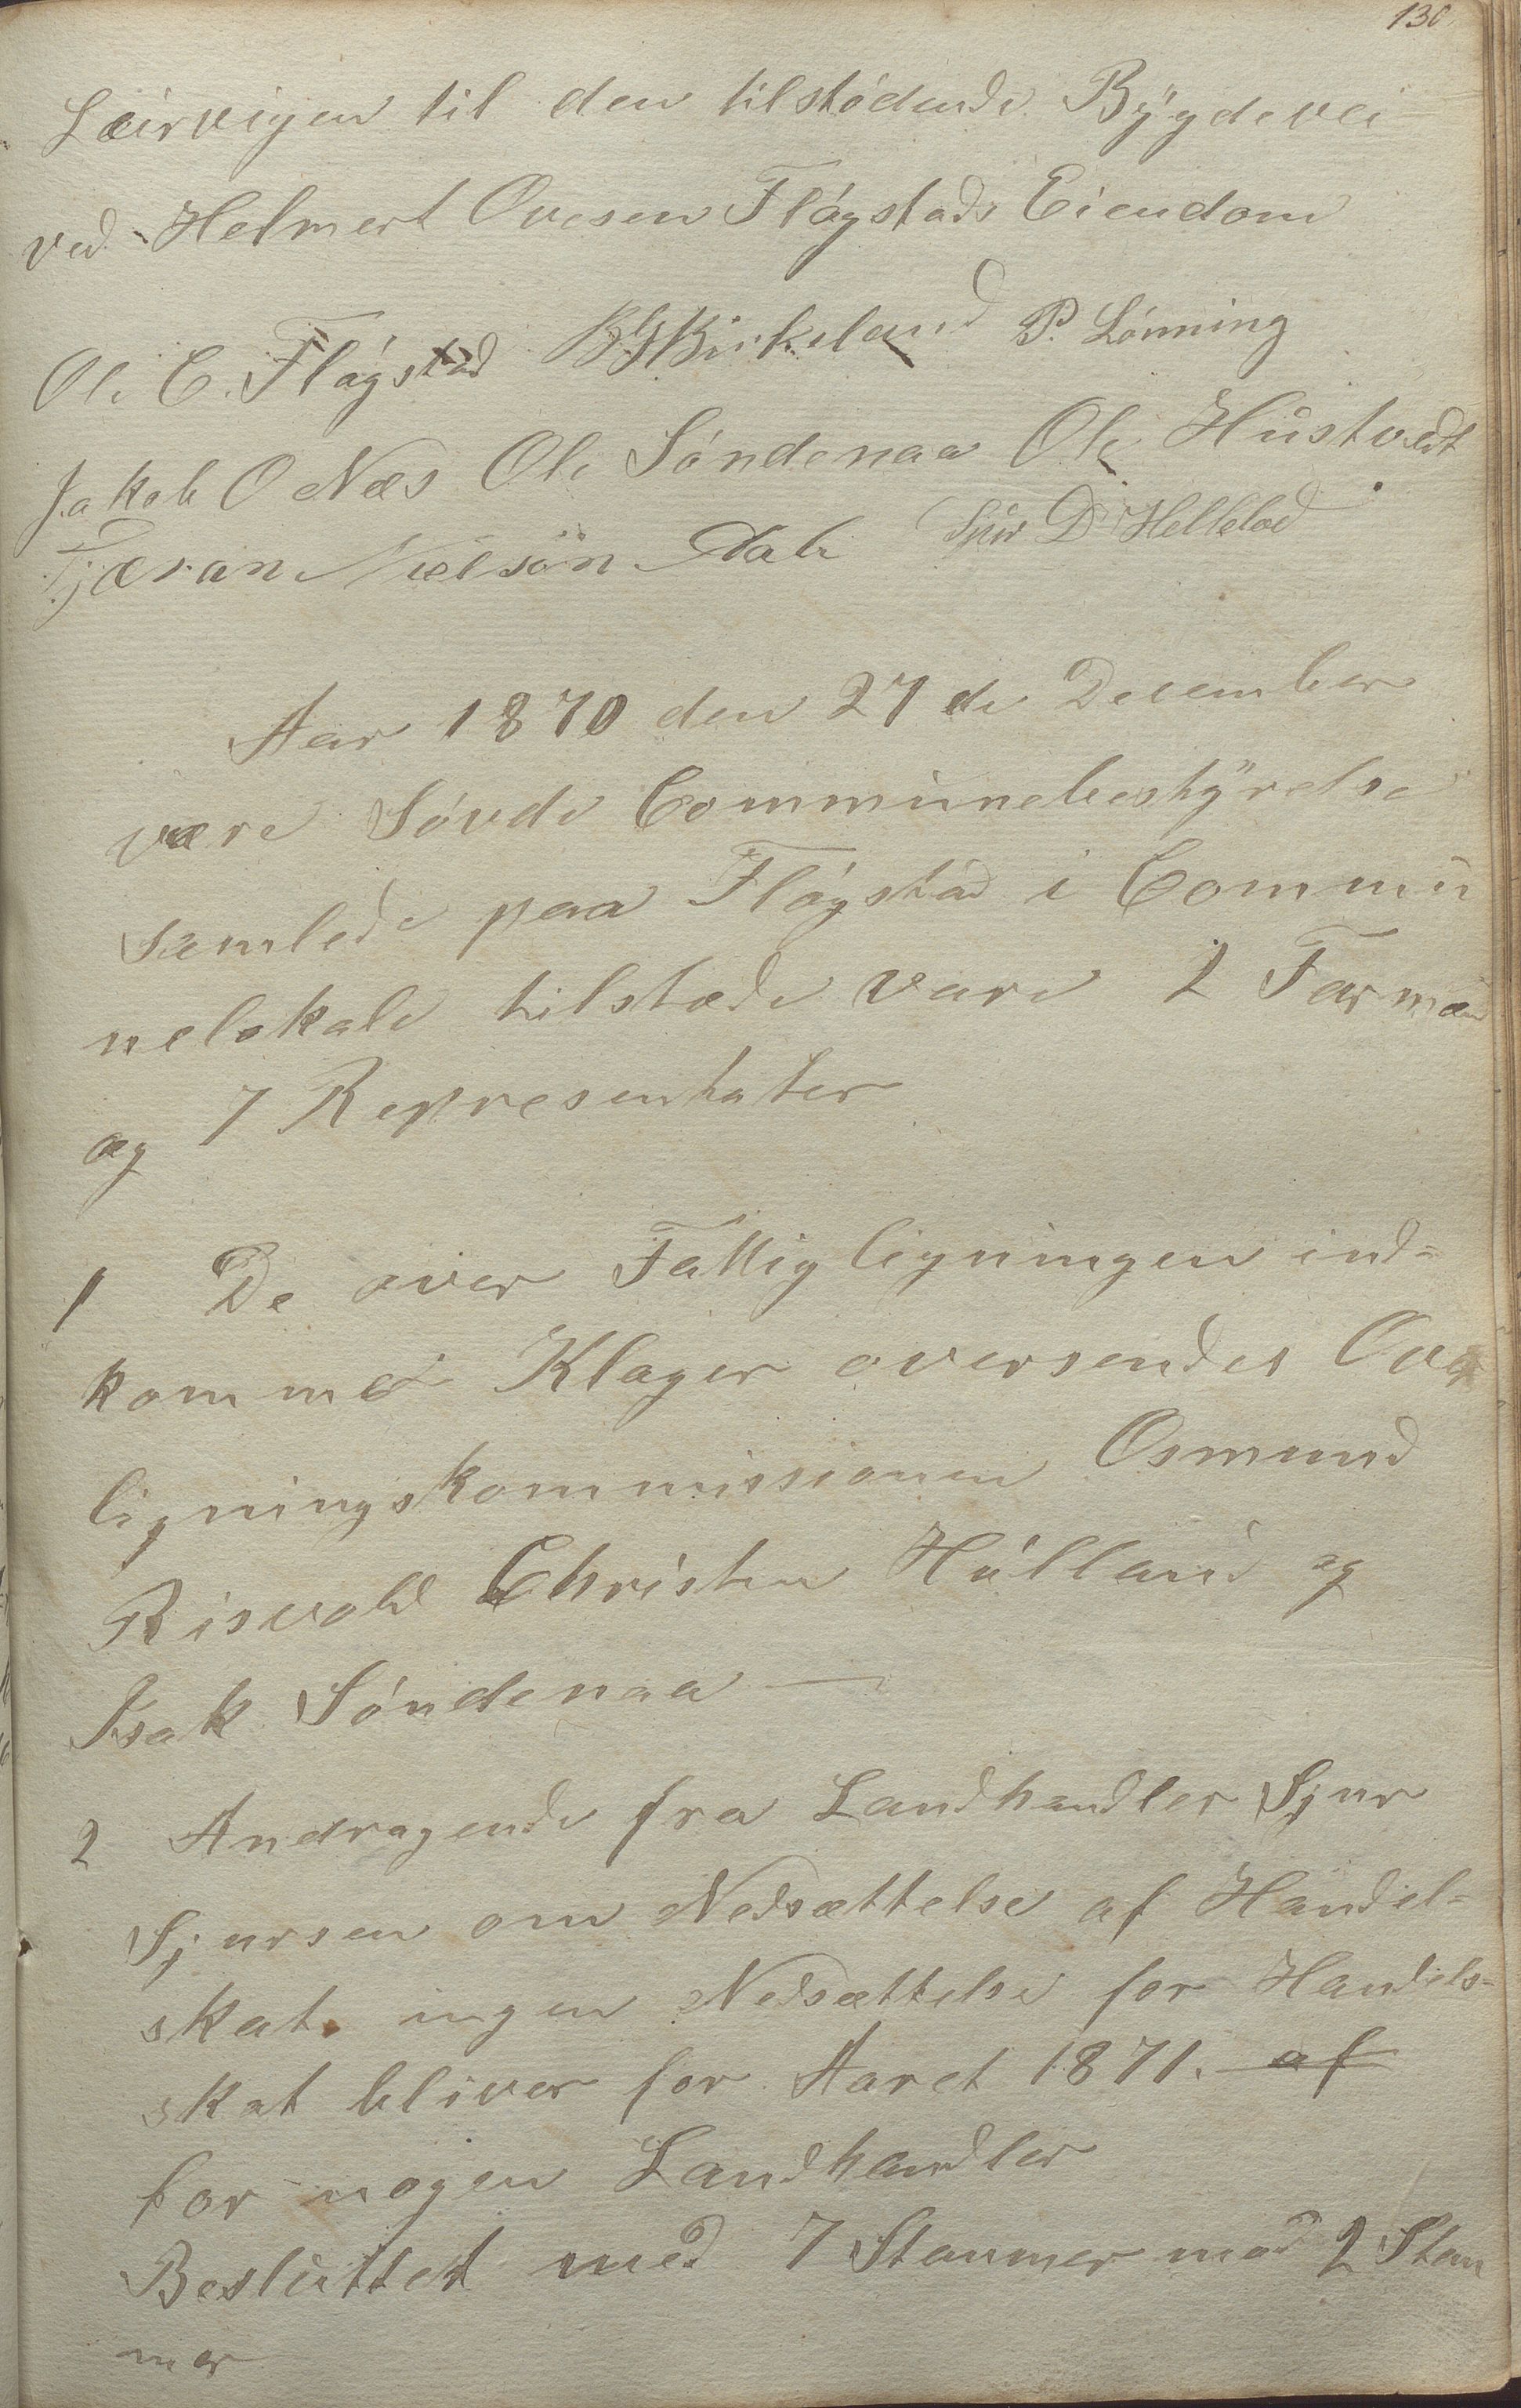 130
Leirvigen til den tilstödende Bÿgdevei
ved Helmert Ovesen Flógstads Eiendom
Ole C. Flógstad BGBirkeland P. Lónning
Jakob O Næs Ole Söndenaa Ole Hustvedt
Tjæran Nielsön Dale Sjur D Helleland
Aar 1870 den 27de December
vare Sövde Communebestÿrelse
samlede paa Flógstad i Commu
nelokale tilstæde vare 2 Formænd
og 7 Representater
1 De over Fattigligningen ind=
komme Klager oversendes Over
ligningskommissionen Osmund
Risvold Christen Hülland og
Isak Söndenaa —
2 Andragende fra Landhandler Sjur
Sjursen om Nedsættelse af Handel=
skat. ingen Nedsættelse for Handels=
skat bliver for Aaret 1871. af
for nogen Landhandler
Besluttet med 7 Stemmer mod 2 Stem
mer